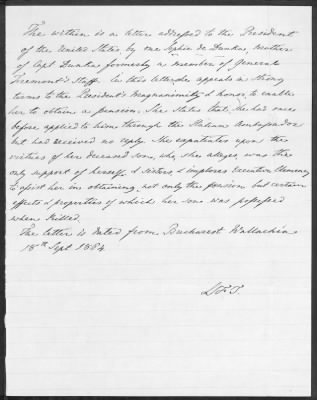 The within is a letter addressed to the President
of the United States, by one Sophie de Dunka, mother
of Capt Dunka formerly a member of General
Fremont's Staff. In this letter she appeals in strong
terms to the President's Magnanimity & honor, to enable
her to obtain a pension. She States that She had once
before applied to him through the Italian Ambassador
but had received no reply. She expatiates upon the
virtues of her deceased son, who, she alleges, was the
only support of herself, & Sisters & implores Executive Clemency
to assist her in obtaining, not only the pension but certain
effects & properties of which her son was possessed
when Killed.
The letter is dated from Bucharest Wallachia
18th Sept 1864.